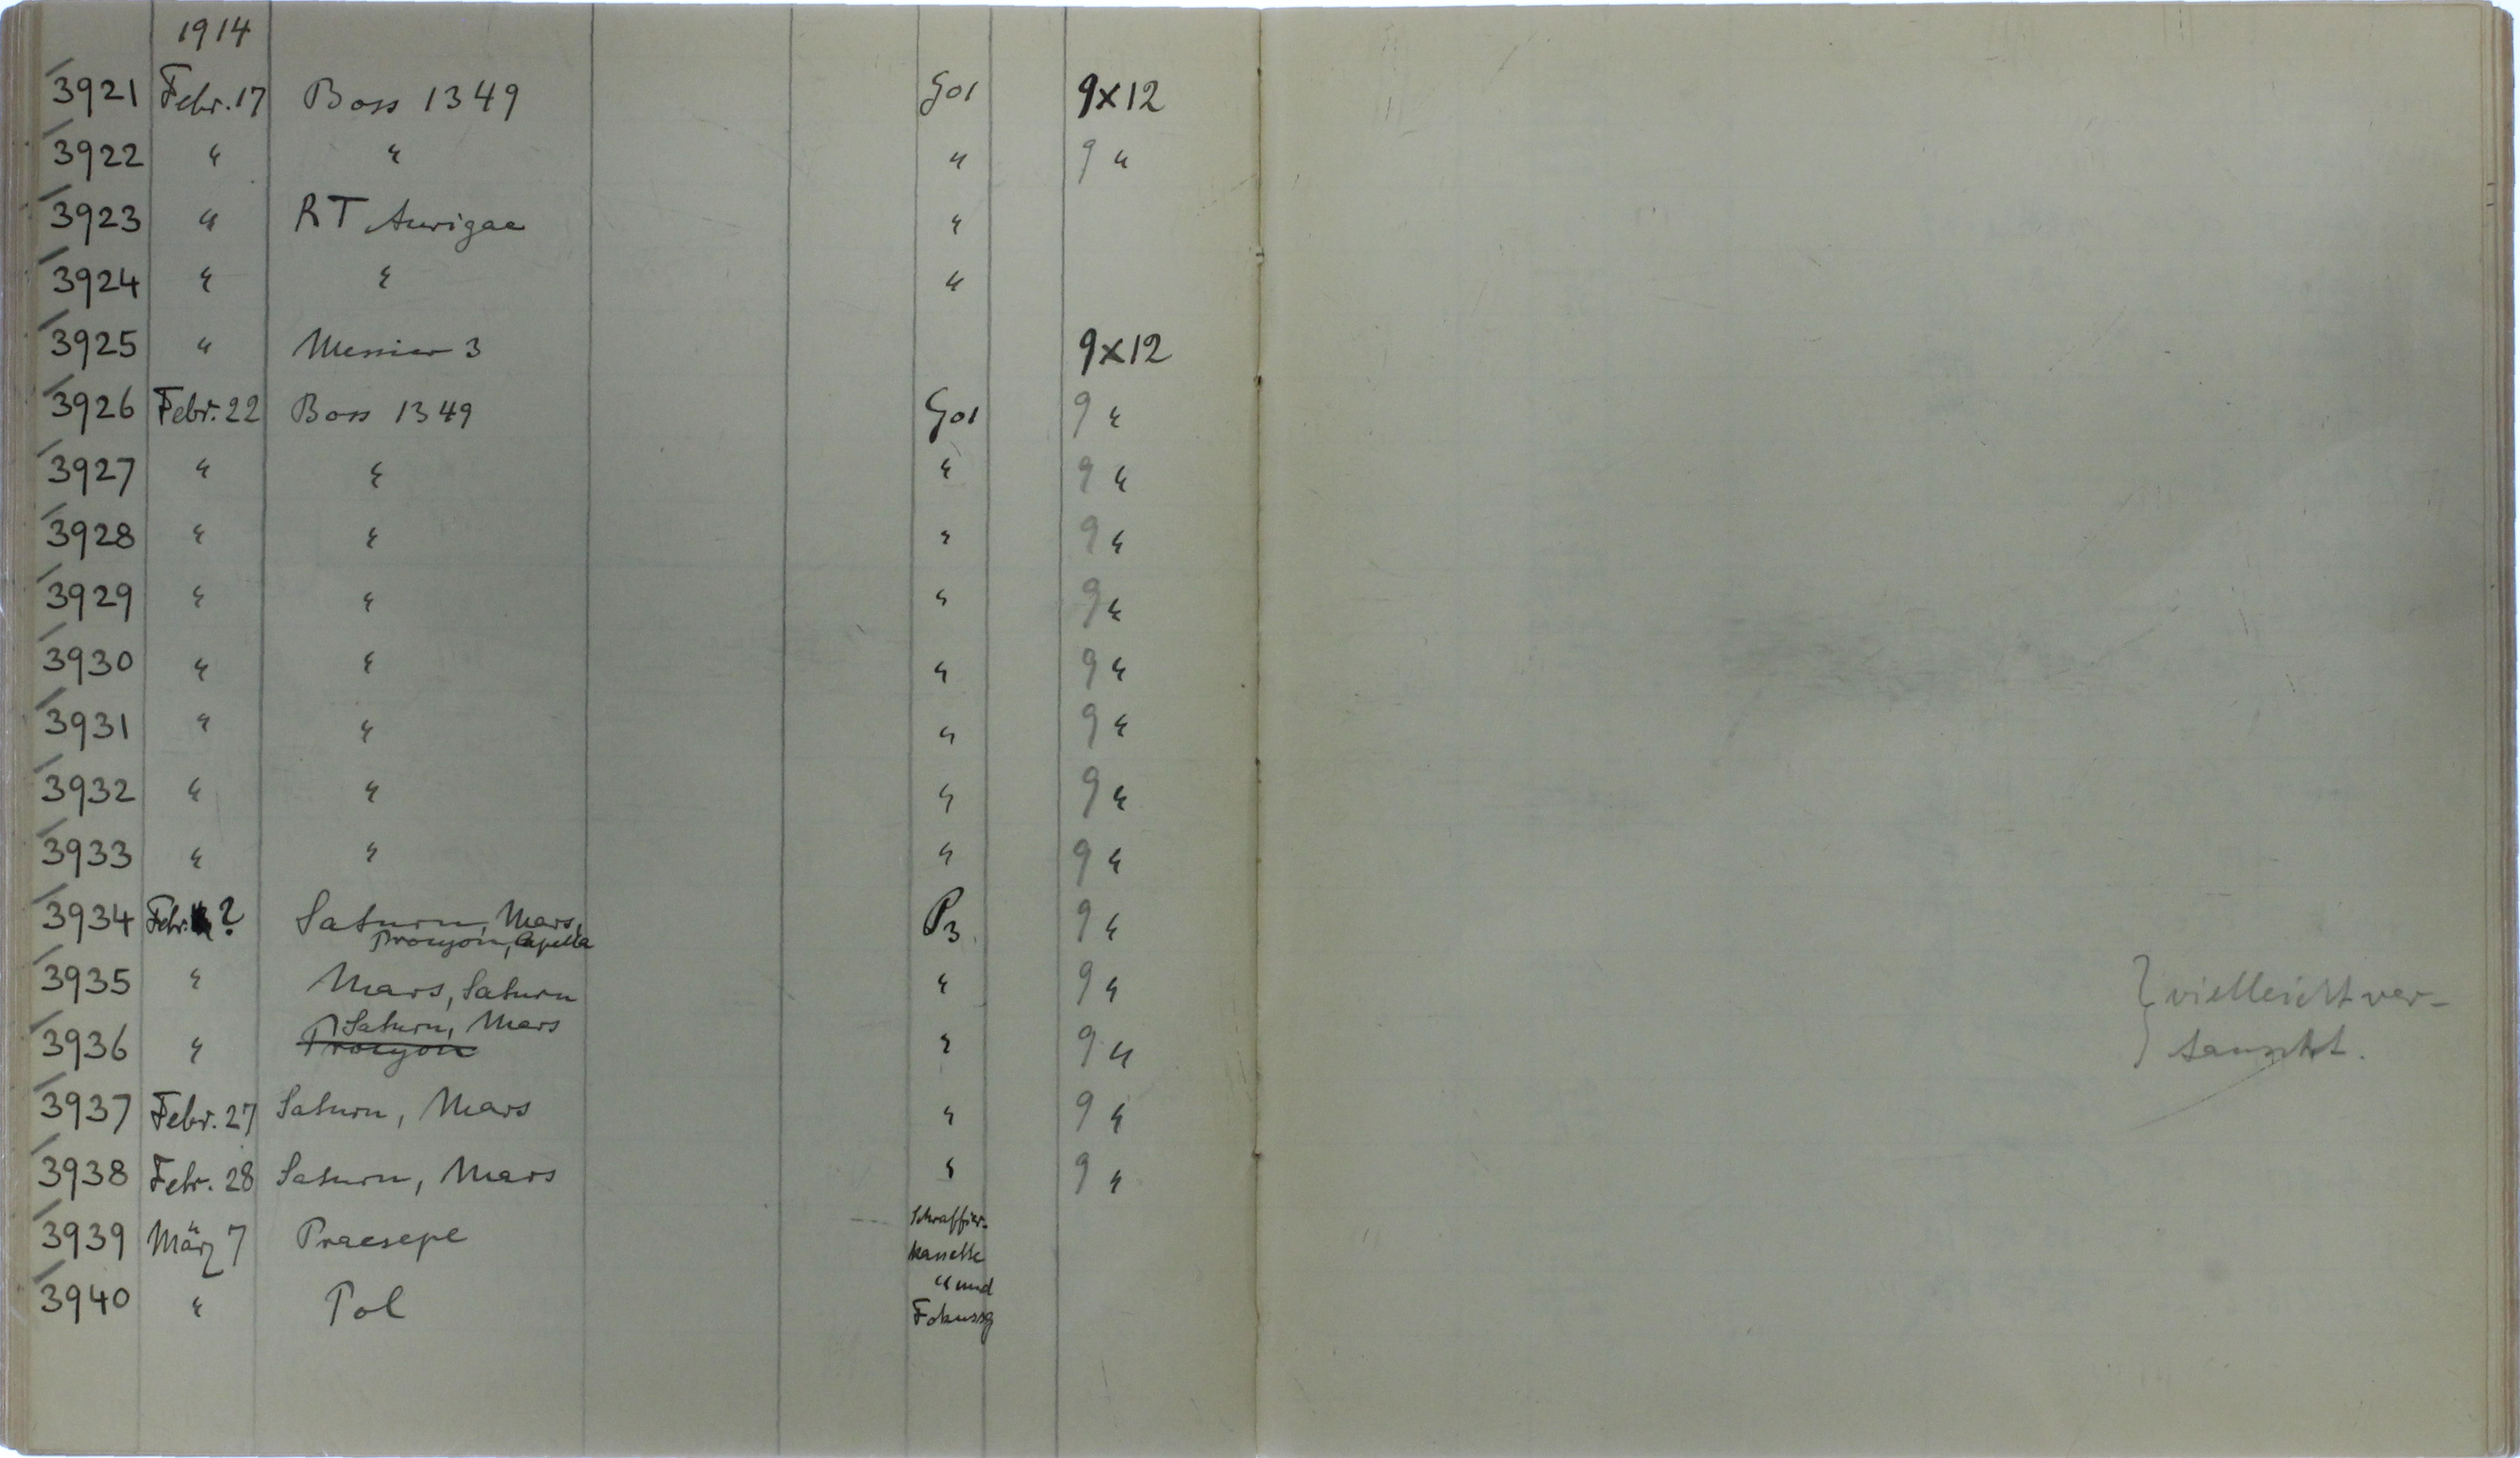 1914
3921 Febr. 17 Boss 1349 Go1 9x12
3922 " " " 9 "
3923 " RT Aurigae "
3924 " " "
3925 " Messier 3 9x12
3926 Febr. 22 Boss 1349 Go1 9 "
3927 " " " 9 "
3928 " " " 9 "
3929 " " " 9 "
3930 " " " 9 "
3931 " " " 9 "
3932 " " " 9 "
3933 " " " 9 "
3934 Febr. ? Saturn, Mars, P3 9 "
Procyon, Capella
3935 " Mars, Saturn " 9 " vielleicht ver-
Saturn, Mars
3936 " Procyon " 9 " tauscht.
3937 Febr. 27 Saturn, Mars " 9 "
3938 Febr. 28 Saturn, Mars " 9 "
Schraffier-
3939 März 7 Praesepe kassette
" und
3940 " Pol Fokussg